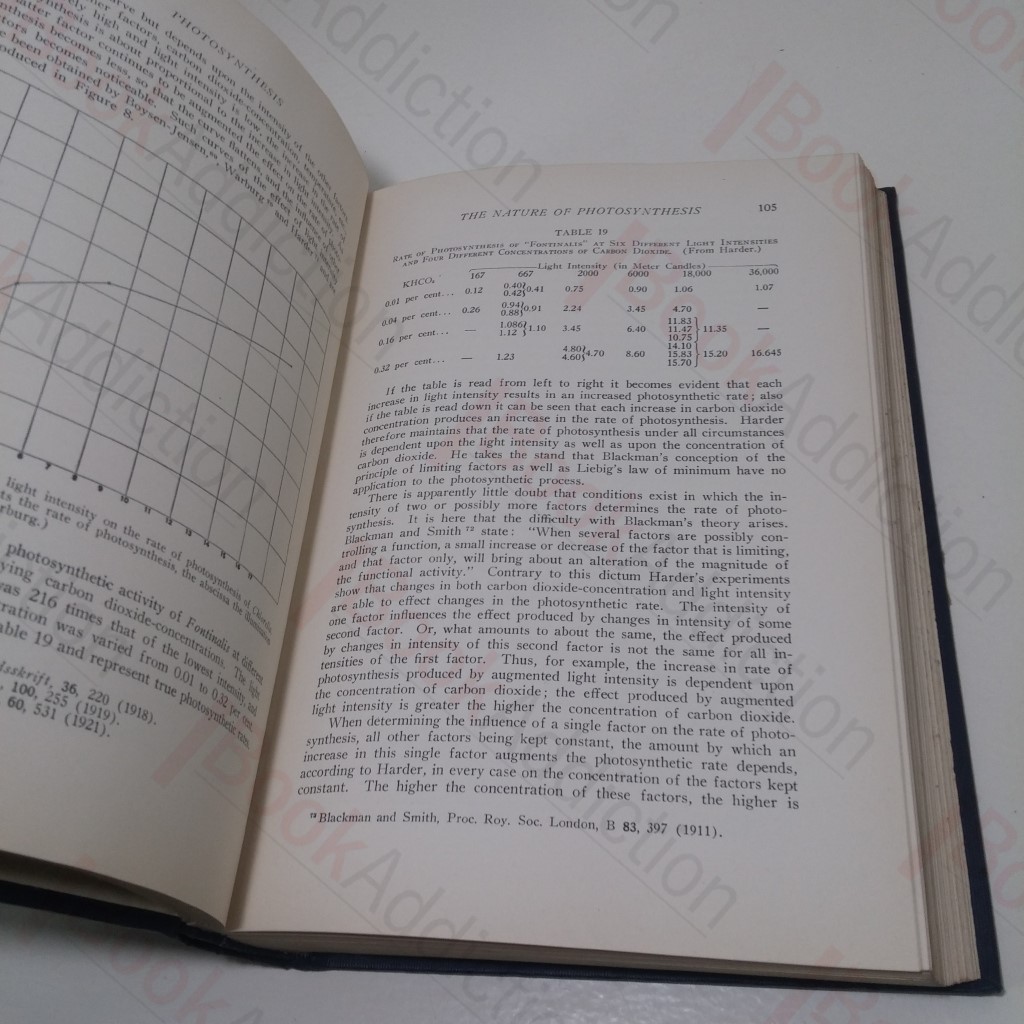 PHOTOSYNTHESIS
rve but depends upon the intensity of the other factors
light intensity on the rate of photosynthesis of Chlorella
ts the rate of photosynthesis, the abscissa the illumination
rburg.)
photosynthetic activity of Fontinalis at different
ying carbon dioxide-concentrations. The light
was 216 times that of the lowest intensity, and
tration was varied from 0.01 to 0.32 per cent.
able 19 and represent true photosynthetic rates.
dsskrift, 36, 220 (1918).
, 100, 255 (1919).
60, 531 (1921).
6 7 8 9 10 11 12 13 14 15 16 17
THE NATURE OF PHOTOSYNTHESIS 105
TABLE 19
Rate of Photosynthesis of "Fontinalis" at Six Different Light Intensities
and Four Different Concentrations of Carbon Dioxide. (From Harder.)
Light Intensity (in Meter Candles)
KHCO₃ 167 667 2000 6000 18,000 36,000
0.01 per cent... 0.12 0.40 0.42}0.41 0.75 0.90 1.06 1.07
0.04 per cent... 0.26 0.94 0.88}0.91 2.24 3.45 4.70 —
0.16 per cent... — 1.086 1.12}1.10 3.45 6.40 11.83 11.47 10.75}11.35 —
0.32 per cent... — 1.23 4.80 4.60}4.70 8.60 14.10 15.83 15.70}15.20 16.645
If the table is read from left to right it becomes evident that each
increase in light intensity results in an increased photosynthetic rate; also
if the table is read down it can be seen that each increase in carbon dioxide
concentration produces an increase in the rate of photosynthesis. Harder
therefore maintains that the rate of photosynthesis under all circumstances
is dependent upon the light intensity as well as upon the concentration of
carbon dioxide. He takes the stand that Blackman's conception of the
principle of limiting factors as well as Liebig's law of minimum have no
application to the photosynthetic process.
There is apparently little doubt that conditions exist in which the in-
tensity of two or possibly more factors determines the rate of photo-
synthesis. It is here that the difficulty with Blackman's theory arises.
Blackman and Smith ⁷² state: "When several factors are possibly con-
trolling a function, a small increase or decrease of the factor that is limiting,
and that factor only, will bring about an alteration of the magnitude of
the functional activity." Contrary to this dictum Harder's experiments
show that changes in both carbon dioxide-concentration and light intensity
are able to effect changes in the photosynthetic rate. The intensity of
one factor influences the effect produced by changes in intensity of some
second factor. Or, what amounts to about the same, the effect produced
by changes in intensity of this second factor is not the same for all in-
tensities of the first factor. Thus, for example, the increase in rate of
photosynthesis produced by augmented light intensity is dependent upon
the concentration of carbon dioxide; the effect produced by augmented
light intensity is greater the higher the concentration of carbon dioxide.
When determining the influence of a single factor on the rate of photo-
synthesis, all other factors being kept constant, the amount by which an
increase in this single factor augments the photosynthetic rate depends,
according to Harder, in every case on the concentration of the factors kept
constant. The higher the concentration of these factors, the higher is
⁷² Blackman and Smith, Proc. Roy. Soc. London, B 83, 397 (1911).
BookAddiction